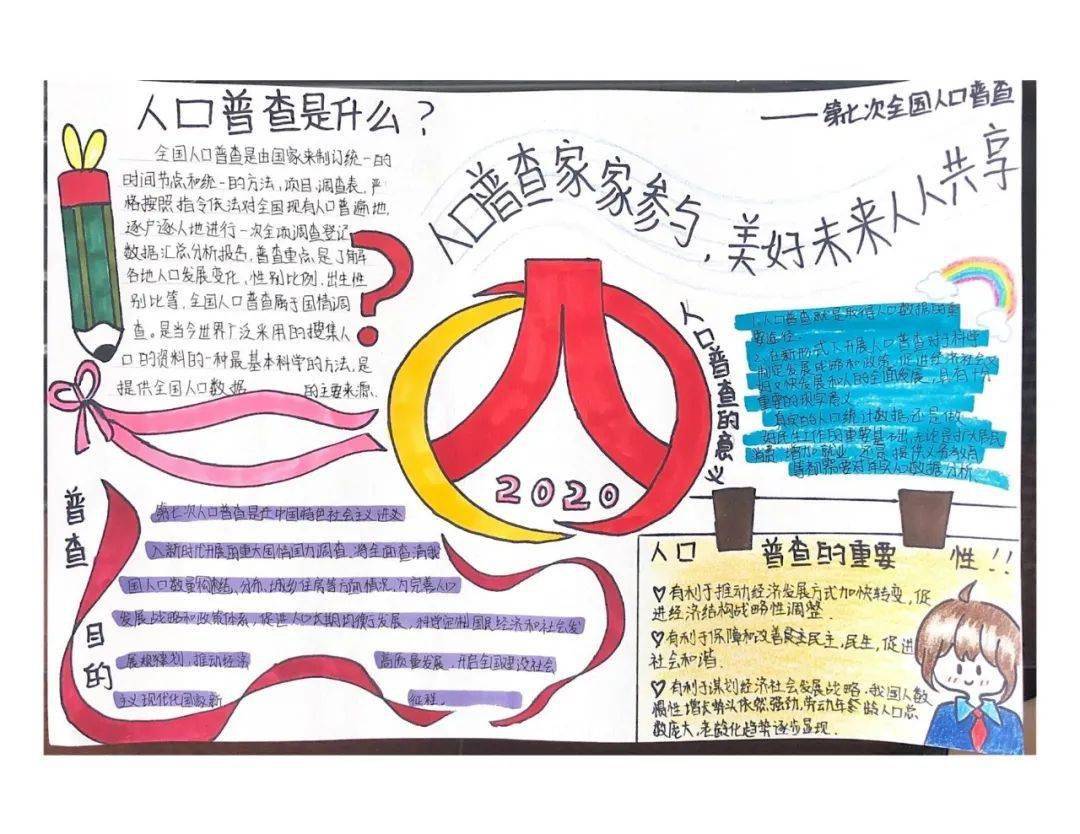 人口普查是什么?
全国人口普查是由国家来制订统一的
时间节点和统一的方法，项目，调查表，严
格按照指令依法对全国现有人口普遍地，
逐户逐人地进行一次全项调查登记
数据汇总分析报告，普查重点是了解
各地人口发展变化，性别比例，出生性
别比等，全国人口普查属于国情调
查。是当今世界广泛采用的搜集人
口的资料的一种最基本科学的方法，是
提供全国人口数据 的主要来源。
——第七次全国人口普查
人口普查家家参与，美好未来人人共享
2020
人口普查的意义
1.人口普查就是取得人口数据的重
要途径。
2.在新形式下开展人口普查对于科学
制定发展战略和政策，促进经济社会又
好又快发展和人的全面发展，具有十分
重要的现实意义
真实的人口统计数据还是做
好民生工作的重要基础，无论是扩大居民
消费，增加就业，还是提供义务教育
等都需要对真实人口数据分析。
普查目的
第七次人口普查是在中国特色社会主义进
入新时代开展的重大国情国力调查，将全面查清我
国人口数量、结构、分布、城乡住房等方面情况，为完善人口
发展战略和政策体系，促进人口长期均衡发展，科学定制国民经济和社会发
展规划，推动经济 高质量发展，开启全国建设社会
主义现代化国家新 征程。
人口普查的重要性!!
♡有利于推动经济发展方式加快转变，促
进经济结构战略性调整.
♡有利于保障和改善民主，民生，促进
社会和谐.
♡有利于谋划经济社会发展战略.我国人数
惯性增长势头依然强劲，劳动年龄人口总
数庞大，老龄化趋势逐步显现.